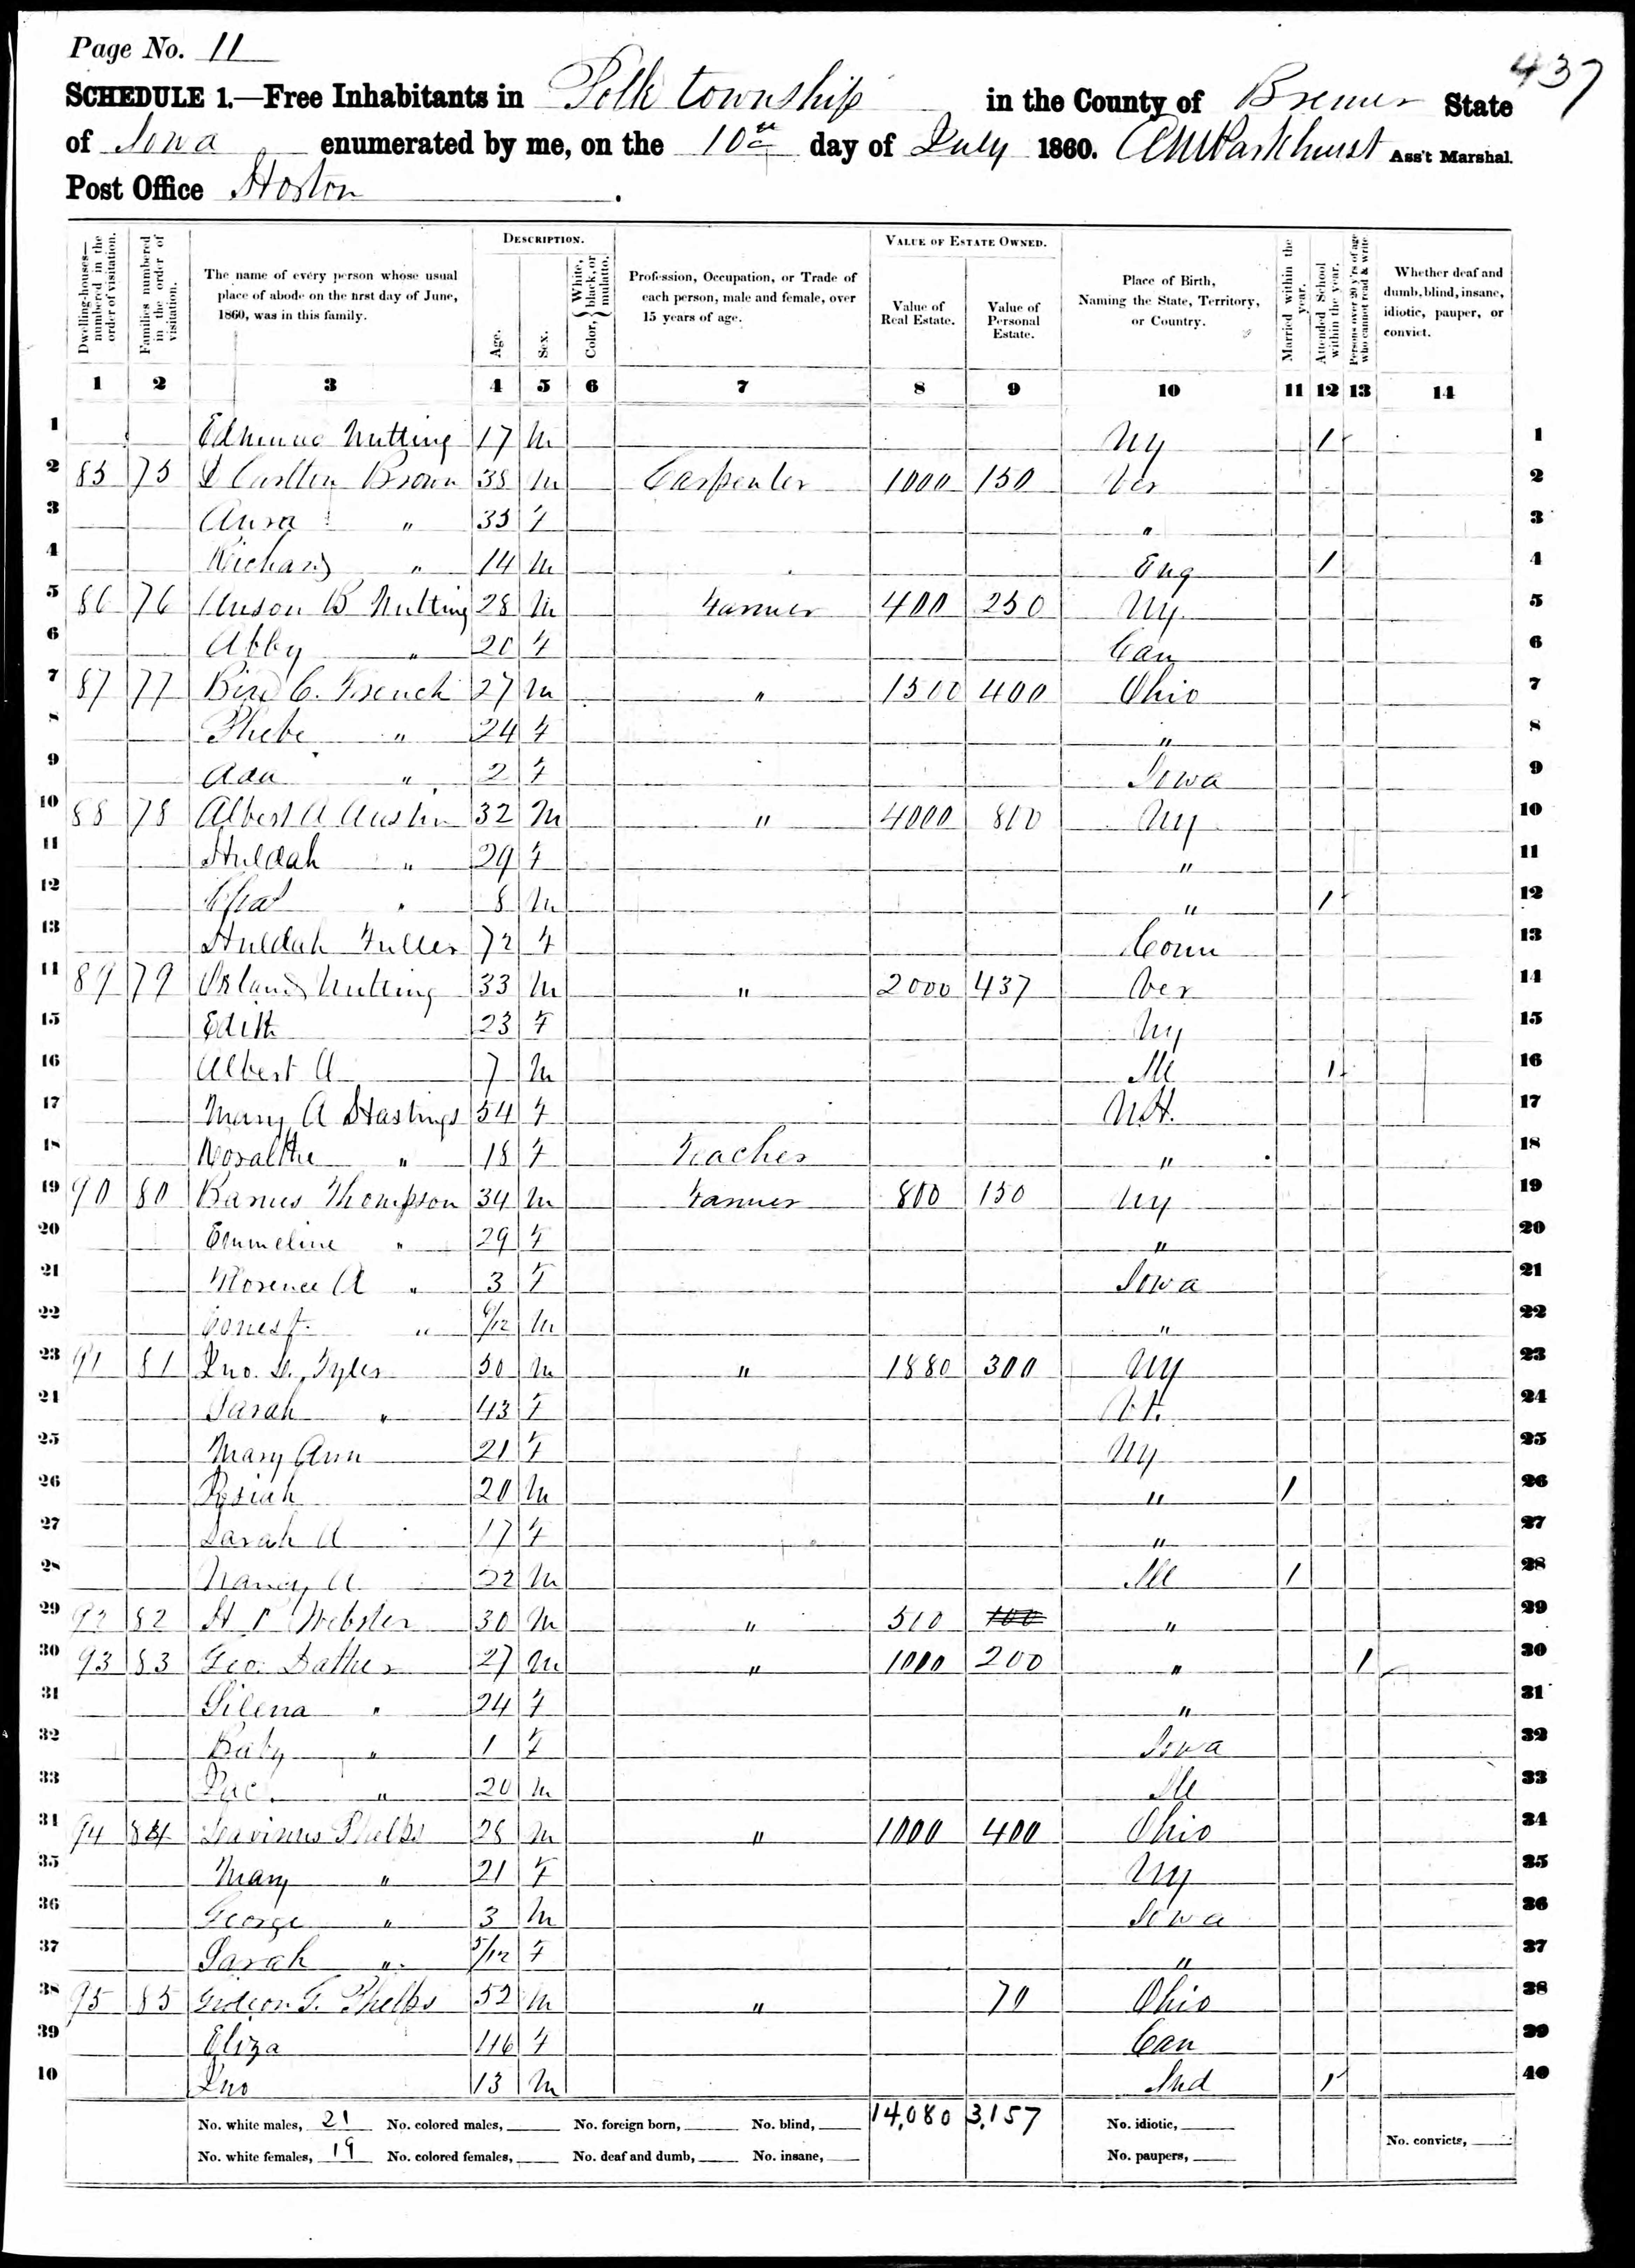 Page No. 11
437
SCHEDULE 1.—Free Inhabitants in Polk township in the County of Bremer State
of Iowa enumerated by me, on the 10th day of July 1860. Parkhurst Ass't Marshal.
Post Office Horton.
Dwelling-houses—numbered in the order of visitation.
Families numbered in the order of visitation.
The name of every person whose usual place of abode on the first day of June, 1860, was in this family.
DESCRIPTION.
Age.
Sex.
Color, { White, black, or mulatto.
Profession, Occupation, or Trade of each person, male and female, over 15 years of age.
VALUE OF ESTATE OWNED.
Value of Real Estate.
Value of Personal Estate.
Place of Birth, Naming the State, Territory, or Country.
Married within the year.
Attended School within the year.
Persons over 20 y'rs of age who cannot read & write
Whether deaf and dumb, blind, insane, idiotic, pauper, or convict.
1 2 3 4 5 6 7 8 9 10 11 12 13 14
1 Nutting 17 M NY 1 1
2 85 75 Carlton Brown 38 M Carpenter 1000 150 Ver 2
3 " 33 F " 3
4 Richard " 14 M Eng 1 4
5 86 76 Anson B Nutting 28 M Farmer 400 250 NY 5
6 Abby " 20 F Can 6
7 87 77 C. French 27 M " 1500 400 Ohio 7
8 Phebe " 24 F " 8
9 Ada " 2 F Iowa 9
10 88 78 Albert A Austin 32 M " 4000 800 NY 10
11 Huldah " 29 F " 11
12 " 8 M " 1 12
13 Huldah Fuller 72 F Conn 13
14 89 79 Orland Nutting 33 M " 2000 437 Ver 14
15 Edith 23 F NY 15
16 Albert A 7 M Ill 1 16
17 Mary A Hastings 54 F N.H. 17
18 Rosalthe " 18 F Teacher " 18
19 90 80 Thompson 34 M Farmer 800 150 NY 19
20 Emmeline " 29 F " 20
21 Florence A " 3 F Iowa 21
22 " 6/12 M " 22
23 91 81 Jno. Tyler 50 M " 1880 300 NY 23
24 Sarah " 43 F Vt. 24
25 Mary Ann 21 F NY 25
26 Josiah 20 M " 1 26
27 Sarah A 17 F " 27
28 Nancy A 22 M Ill 1 28
29 92 82 H P Webster 30 M " 500 100 " 29
30 93 83 Geo. 27 M " 1000 200 " 1 30
31 Silena " 24 F " 31
32 Baby " 1 F Iowa 32
33 " 20 M Ill 33
34 94 84 Phelps 28 M " 1000 400 Ohio 34
35 Mary " 21 F NY 35
36 George " 3 M Iowa 36
37 Sarah " 5/12 F " 37
38 95 85 Gideon G. Phelps 52 M " 70 Ohio 38
39 Eliza 46 F Can 39
40 Jno 13 M Ind 1 40
No. white males, 21 No. colored males, No. foreign born, No. blind, 14,080 3,157 No. idiotic,
No. white females, 19 No. colored females, No. deaf and dumb, No. insane, No. paupers, No. convicts,